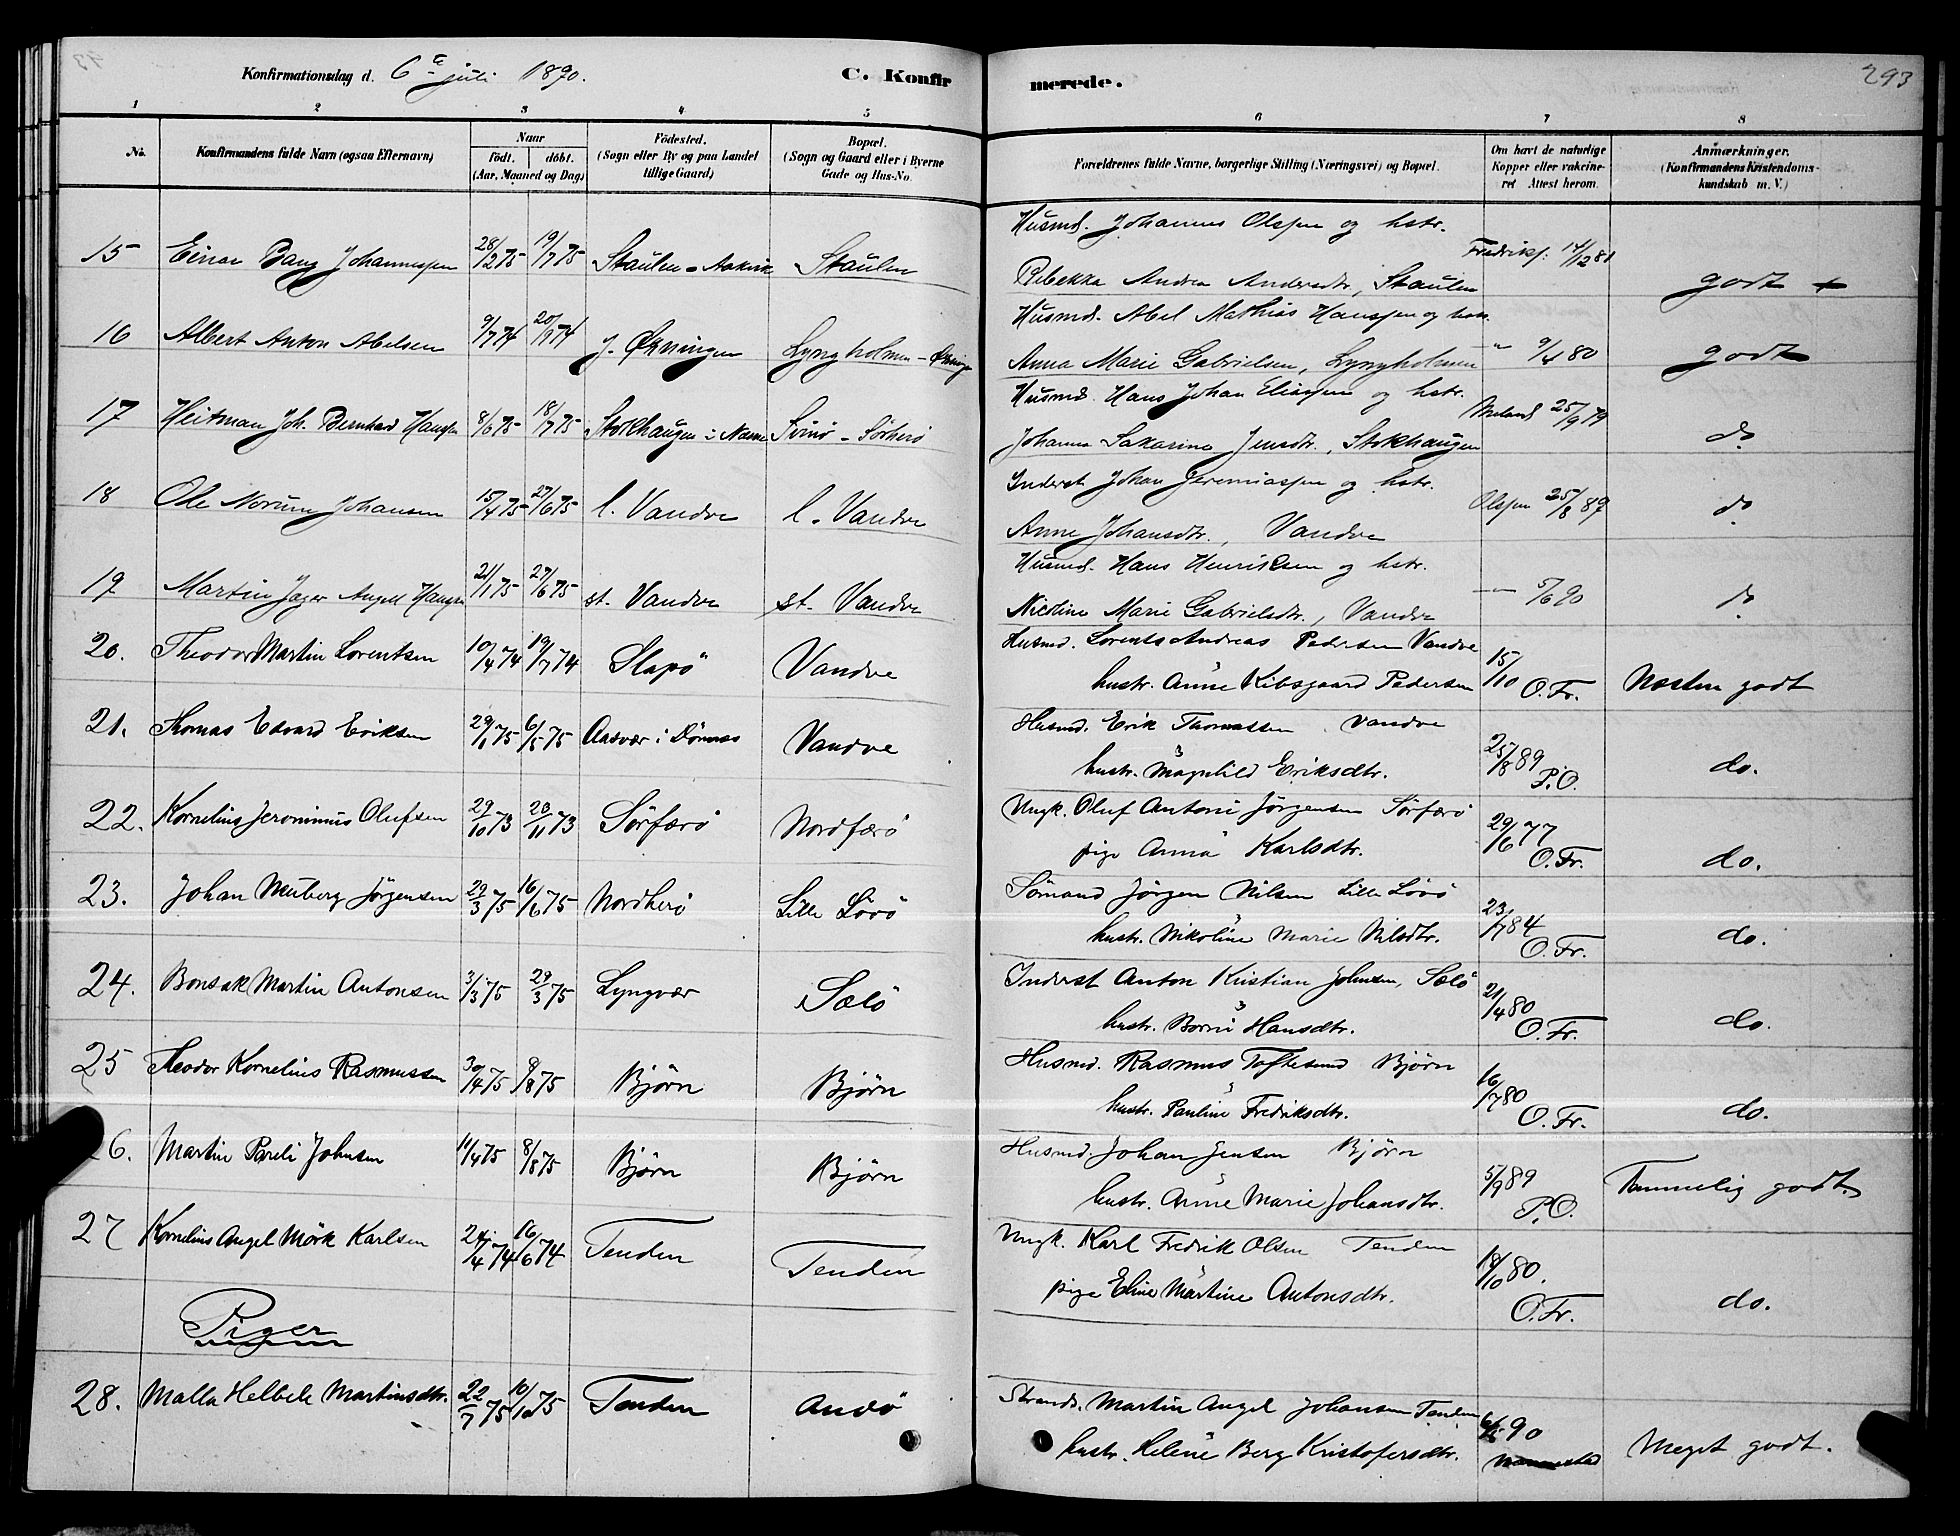 Konfirmationsdag d. 6te juli 1890.
C. Konfirmerede.
293
1 2 3 4 5 6 7 8
No. Konfirmandens fulde Navn (ogsaa Efternavn) Naar født. døbt. (Aar, Maaned og Dag) Fødested. (Sogn eller By og paa Landet tillige Gaard) Bopæl. (Sogn og Gaard eller i Byerne Gade og Hus-No. Forældrenes fulde Navne, borgerlige Stilling (Næringsvei) og Bopæl. Om havt de naturlige Kopper eller vakcineret Attest herom. Anmærkninger. (Konfirmandens Kristendomskundskab m. V.)
15 Einar Bang Johannessen 28/2 75 19/7 75 Staulen - Staulen Husmd. Johannes Olssen og hstr.
Rebekka Andrea Andersdtr, Staulen Fredriks. 14/12 81 godt +
16 Albert Anton Abelsen 9/7 74 20/9 74 Økningen Lyngholmen - Husmd. Abel Mathias Hanssen og hstr.
Anna Marie Gabrielsen, Lyngholmen -"- 9/4 80 godt
17 Heitman Joh. Bernhard Hanssen 8/6 75 18/7 75 Stokhaugen i Svinø - Sørherø Husmd. Hans Johan Eliassen og hstr.
Johanna Sakarina Jensdtr., Stokhaugen Meland 25/9 79 do
18 Ole Norum Johansen 15/4 75 27/6 75 l. Vandve l. Vandve Inderst Johan Jeremiassen og hstr.
Anne Johansdtr., Vandve Olssen 25/8 89 do
19 Martin Jager Angel Hanssen 21/1 75 27/6 75 st. Vandve st. Vandve Husmd. Hans Henriksen og hstr.
Nicoline Marie Gabrielsdtr., Vandve -"- 5/6 90 do
20. Theodor Martin Lorentsen 10/4 74 19/7 74 Slapø Vandve Husmd. Lorents Andreas Pedersen Vandve
hustr. Anne Kibsgaard Pedersen 15/10 O. Fr. Næsten godt
21. Thomas Edvard Eriksen 29/1 75 6/5 75 Aasvær i Dønnes Vandve Husmd. Erik Thomassen Vandve
hustr. Magnhild Eriksdtr. 25/8 89 P. O. do.
22. Kornelius Jeronimus Olufsen 29/10 73 28/11 73 Sørfærø Nordfærø Ungk. Oluf Antoni Jørgensen Sørfærø
pige Anna Karlsdtr. 29/6 77 O. Fr. do.
23. Johan Meuberg Jørgensen 29/3 75 16/6 75 Nordherø Lille Løvø Sømand Jørgen Nilsen Lille Løvø
hustr. Nikoline Marie Nilsdtr. 23/7 84 O. Fr. do.
24. Bonsak Martin Antonsen 3/3 75 29/3 75 Lyngvær Sælø Inderst Anton Kristian Johnsen, Sælø
hustr. Hansdtr. 21/4 80 O. Fr. do.
25 Theodor Kornelius Rasmussen 30/4 75 8/8 75 Bjørn Bjørn Husmd. Rasmus Toftesund Bjørn
hustr. Pauline Fredriksdtr. 16/7 80 O. Fr. do.
26. Martin Pareli Johnsen 11/4 75 8/8 75 Bjørn Bjørn Husmd. Johan Jensen Bjørn
hustr. Anne Marie Johansdtr. 5/9 89 P. O. Temmelig godt
27 Kornelius Angel Mörk Karlsen 24/4 74 16/6 74 Tenden Tenden Ungk. Karl Fredrik Olsen Tenden
pige Eline Martine Antonsdtr. 18/10 80. O. Fr. do.
Piger
28. Malla Helbek Martinsdtr. 22/7 75 10/10 75 Tenden Andø Strands. Martin Angel Johansen Tenden
hustr. Helene Berg Kristofersdtr. 90 Meget godt.